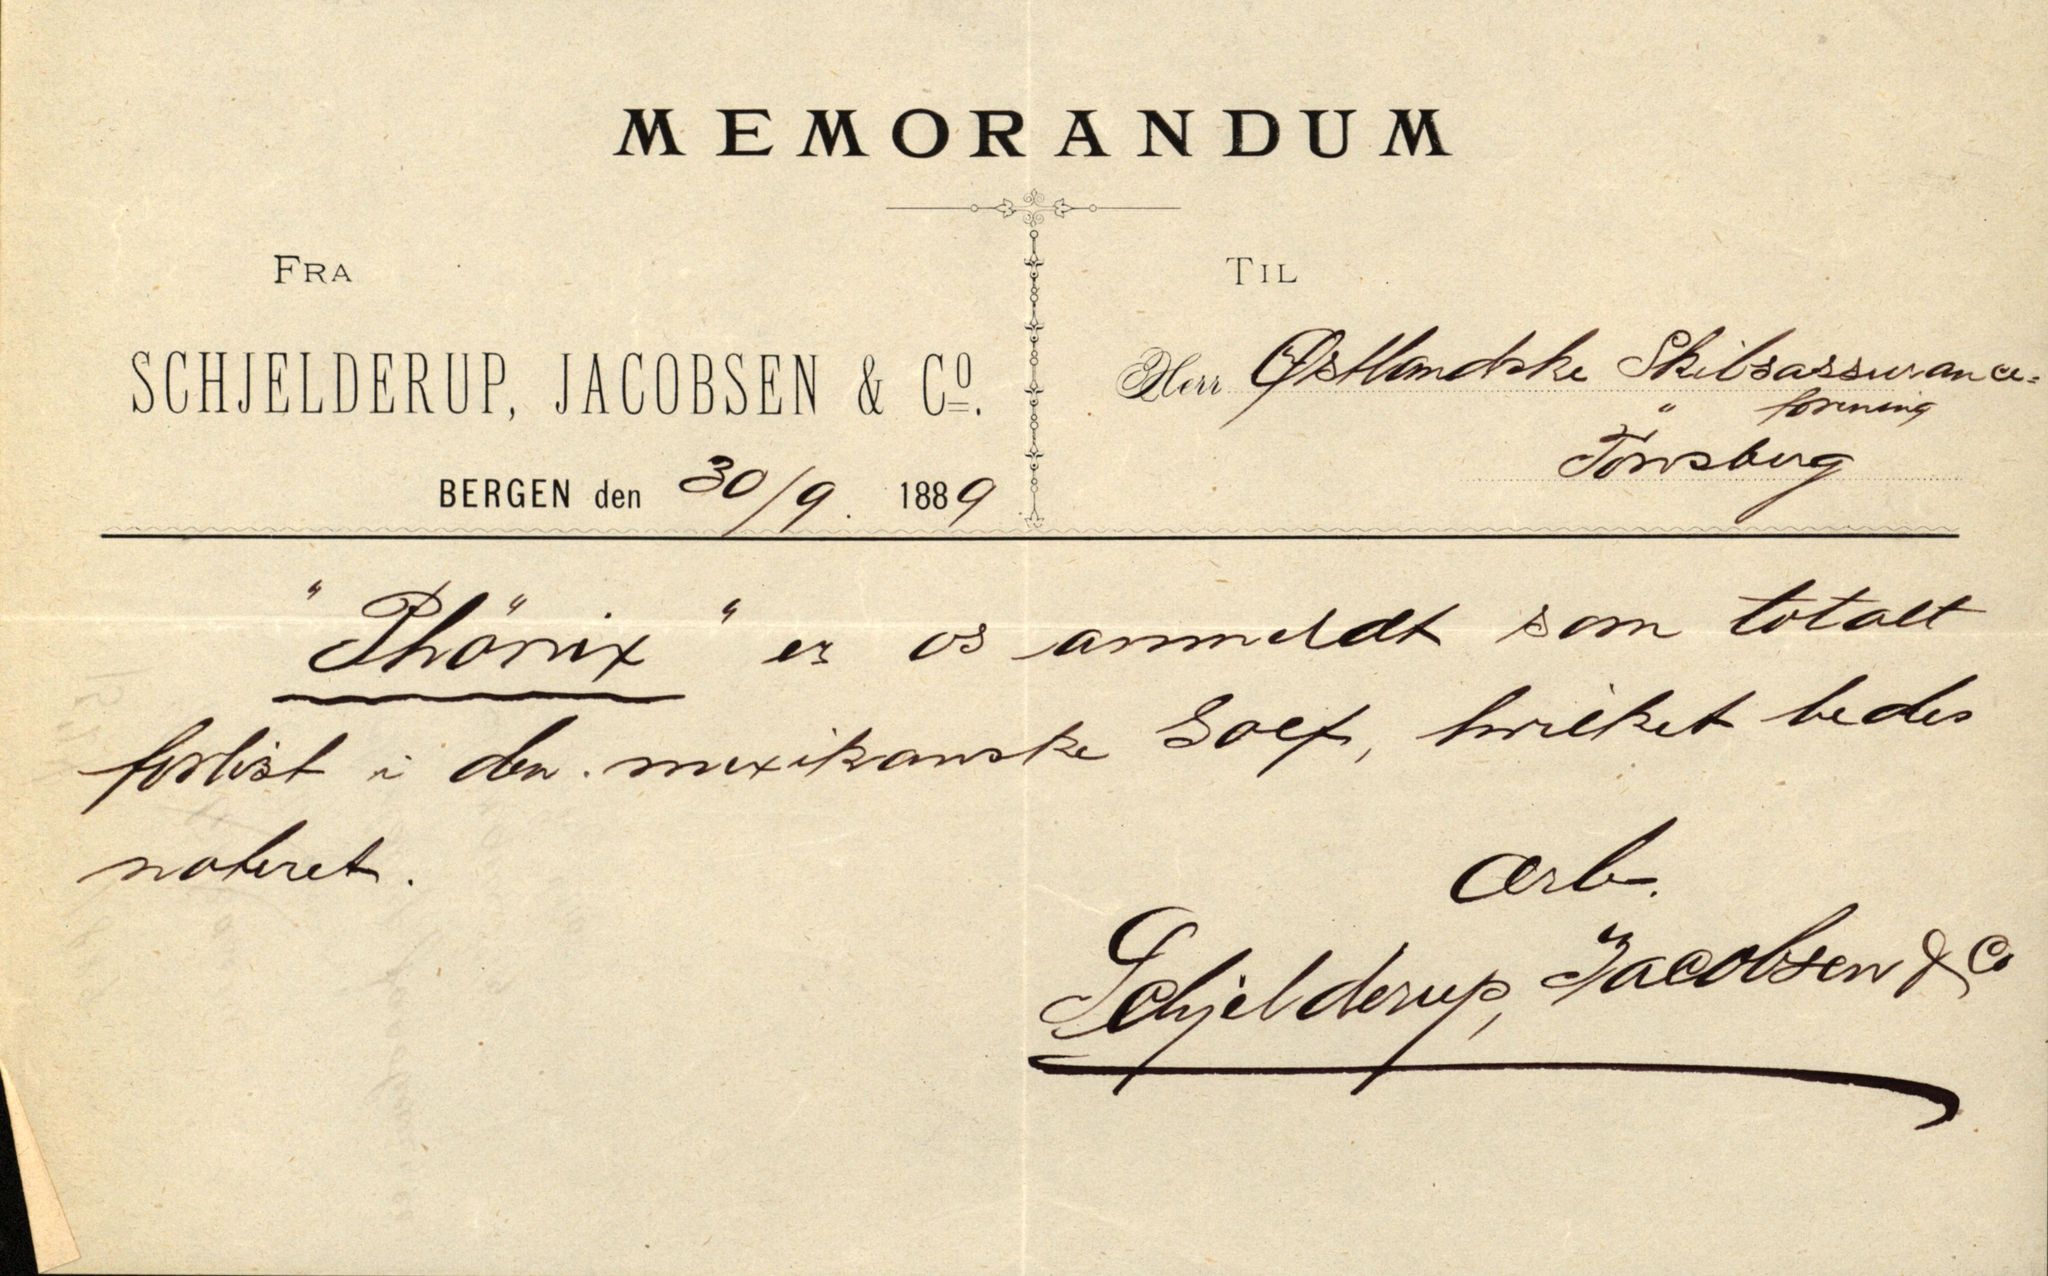 MEMORANDUM
FRA
TIL
SCHJELDERUP, JACOBSEN & Co.
Herr Østlandske Skibsassurance-
" forening
Tønsberg
BERGEN den 30/9. 1889
"Phönix" er os anmeldt som totalt
forlist i den mexikanske Golf, hvilket bedes
noteret.
Ærb.
Schjelderup, Jacobsen & Co